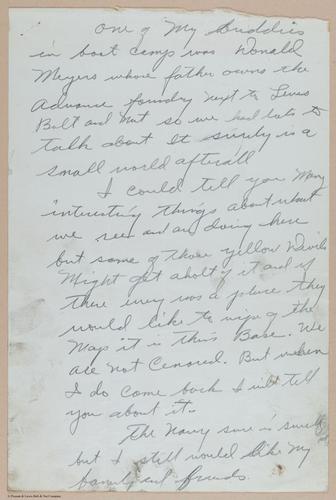 One of My Buddies
in boot camp was Donald
Meyers whose father owns the
Advance foundry next to Lewis
Bolt and Nut so we had lots to
talk about It surely is a
small world afterall
I could tell you Many
interesting things about what
we seen and are doing here
but some of those yellow Devils
Might get aholt of it and if
there every was a place they
would like to wipe of the
Map it is this Base. We
are not Censored. But when
I do come back I will tell
you about it.
The Navy sure is swell
but I still would like My
family and friends.